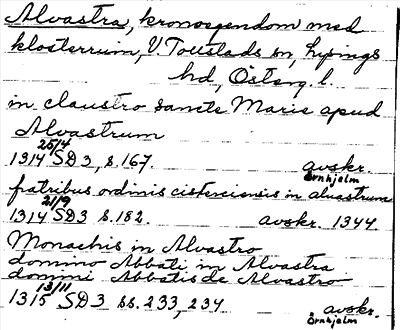 Alvastra, kronoegendom med
klosterruin, V. Tollstads sn, Lysings
hd, Österg. l.
in claustro sancte Marie apud
Alvastrum
1314 25/4 SD 3, s. 167. avskr. Örnhjelm
fratribus ordinis cisterciensis in aluastrum
1314 21/9 SD 3 s. 182. avskr. 1344.
Monachis in Alvastro
domino Abbati in Alvastra
domini Abbatis de Alvastro
1315 13/11 SD 3 ss. 233, 234 avskr. Örnhjelm